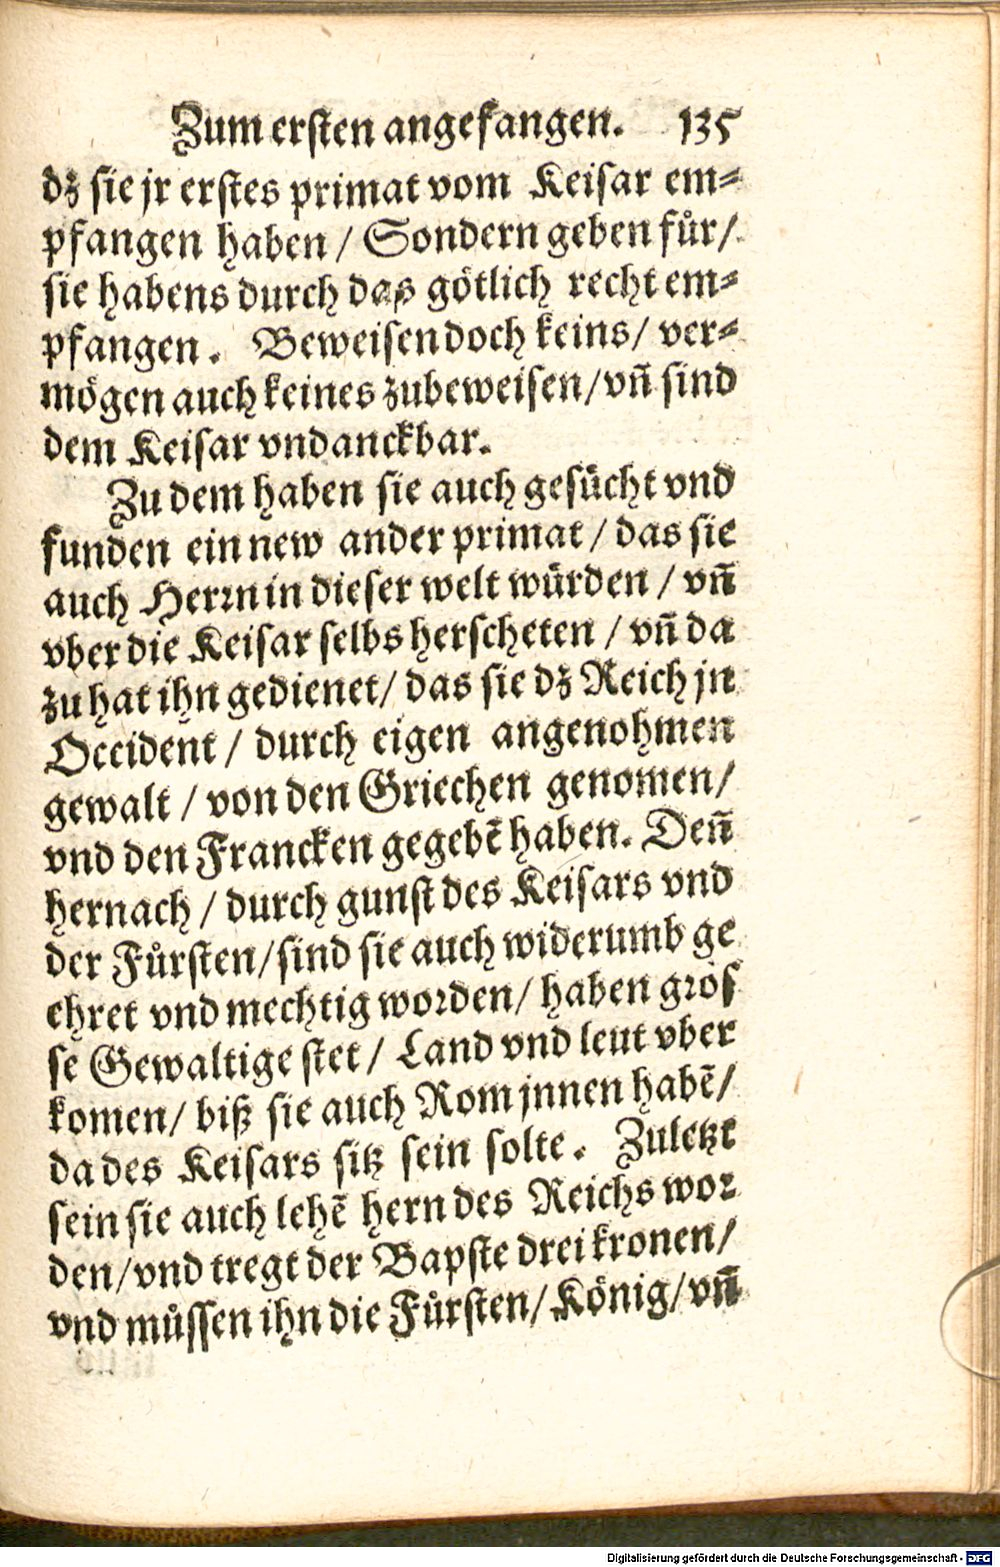 Zum ersten angefangen. 135
dz sie jr erstes primat vom Keisar em⸗
pfangen haben / Sondern geben fuͤr /
sie habens durch das goͤtlich recht em⸗
pfangen. Beweisen doch keins / ver⸗
moͤgen auch keines zubeweisen / vñ sind
dem Keisar vndanckbar.
Zu dem haben sie auch gesuͤcht vnd
funden ein new ander primat / das sie
auch Herrn in dieser welt wuͤrden / vñ
vber die Keisar selbs herscheten / vñ da
zu hat ihn gedienet / das sie dz Reich jn
Occident / durch eigen angenohmen
gewalt / von den Griechen genomen /
vnd den Francken gegebẽ haben. Deñ
hernach / durch gunst des Keisars vnd
der Fuͤrsten / sind sie auch widerumb ge
ehret vnd mechtig worden / haben gros
se Gewaltige stet / Land vnd leut vber
komen / biß sie auch Rom jnnen habẽ /
da des Keisars sitz sein solte. Zuletzt
sein sie auch lehẽ hern des Reichs wor
den / vnd tregt der Bapste drei kronen /
vnd muͤssen ihn die Fuͤrsten / Koͤnig / vñ
Digitalisierung gefördert durch die Deutsche Forschungsgemeinschaft - DFG